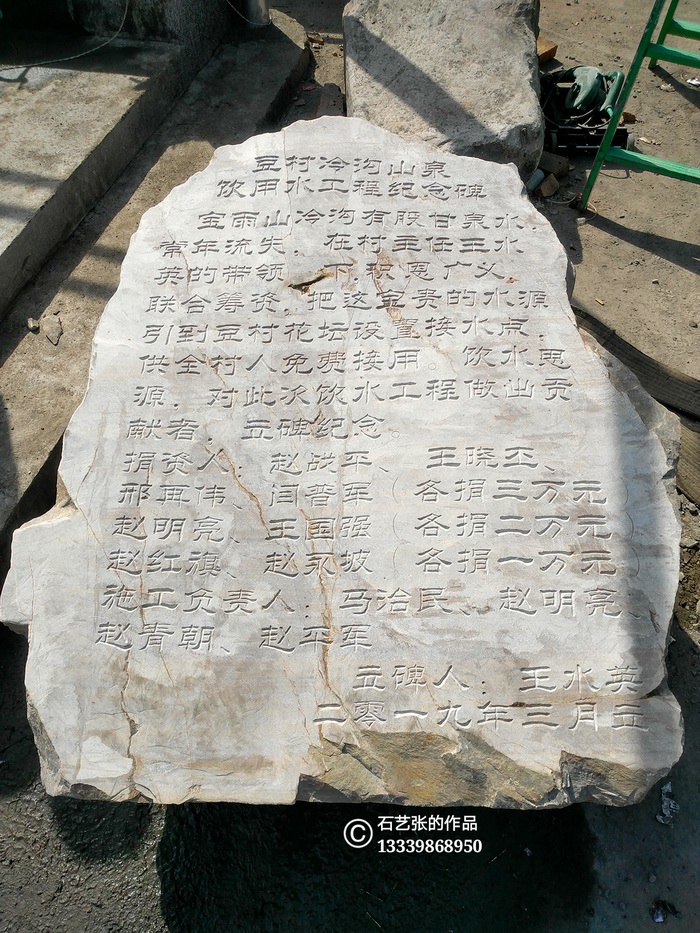 豆村冷沟山泉
饮用水工程纪念碑
宝雨山冷沟有股甘泉水，
常年流失，在村主任王水
英的带领下，积恩广义，
联合筹资，把这宝贵的水源
引到豆村花坛设置接水点，
供全村人免费接用。饮水思
源，对此次饮水工程做出贡
献者，立碑纪念。
捐资人：赵战平、王晓丕、
邢再伟、闫普军（各捐三万元）
赵明亮、王国强（各捐二万元）
赵红旗、赵永坡（各捐一万元）
施工负责人：马治民、赵明亮、
赵青朝、赵平军
立碑人：王水英
二零一九年三月立
©石艺张的作品
13339868950